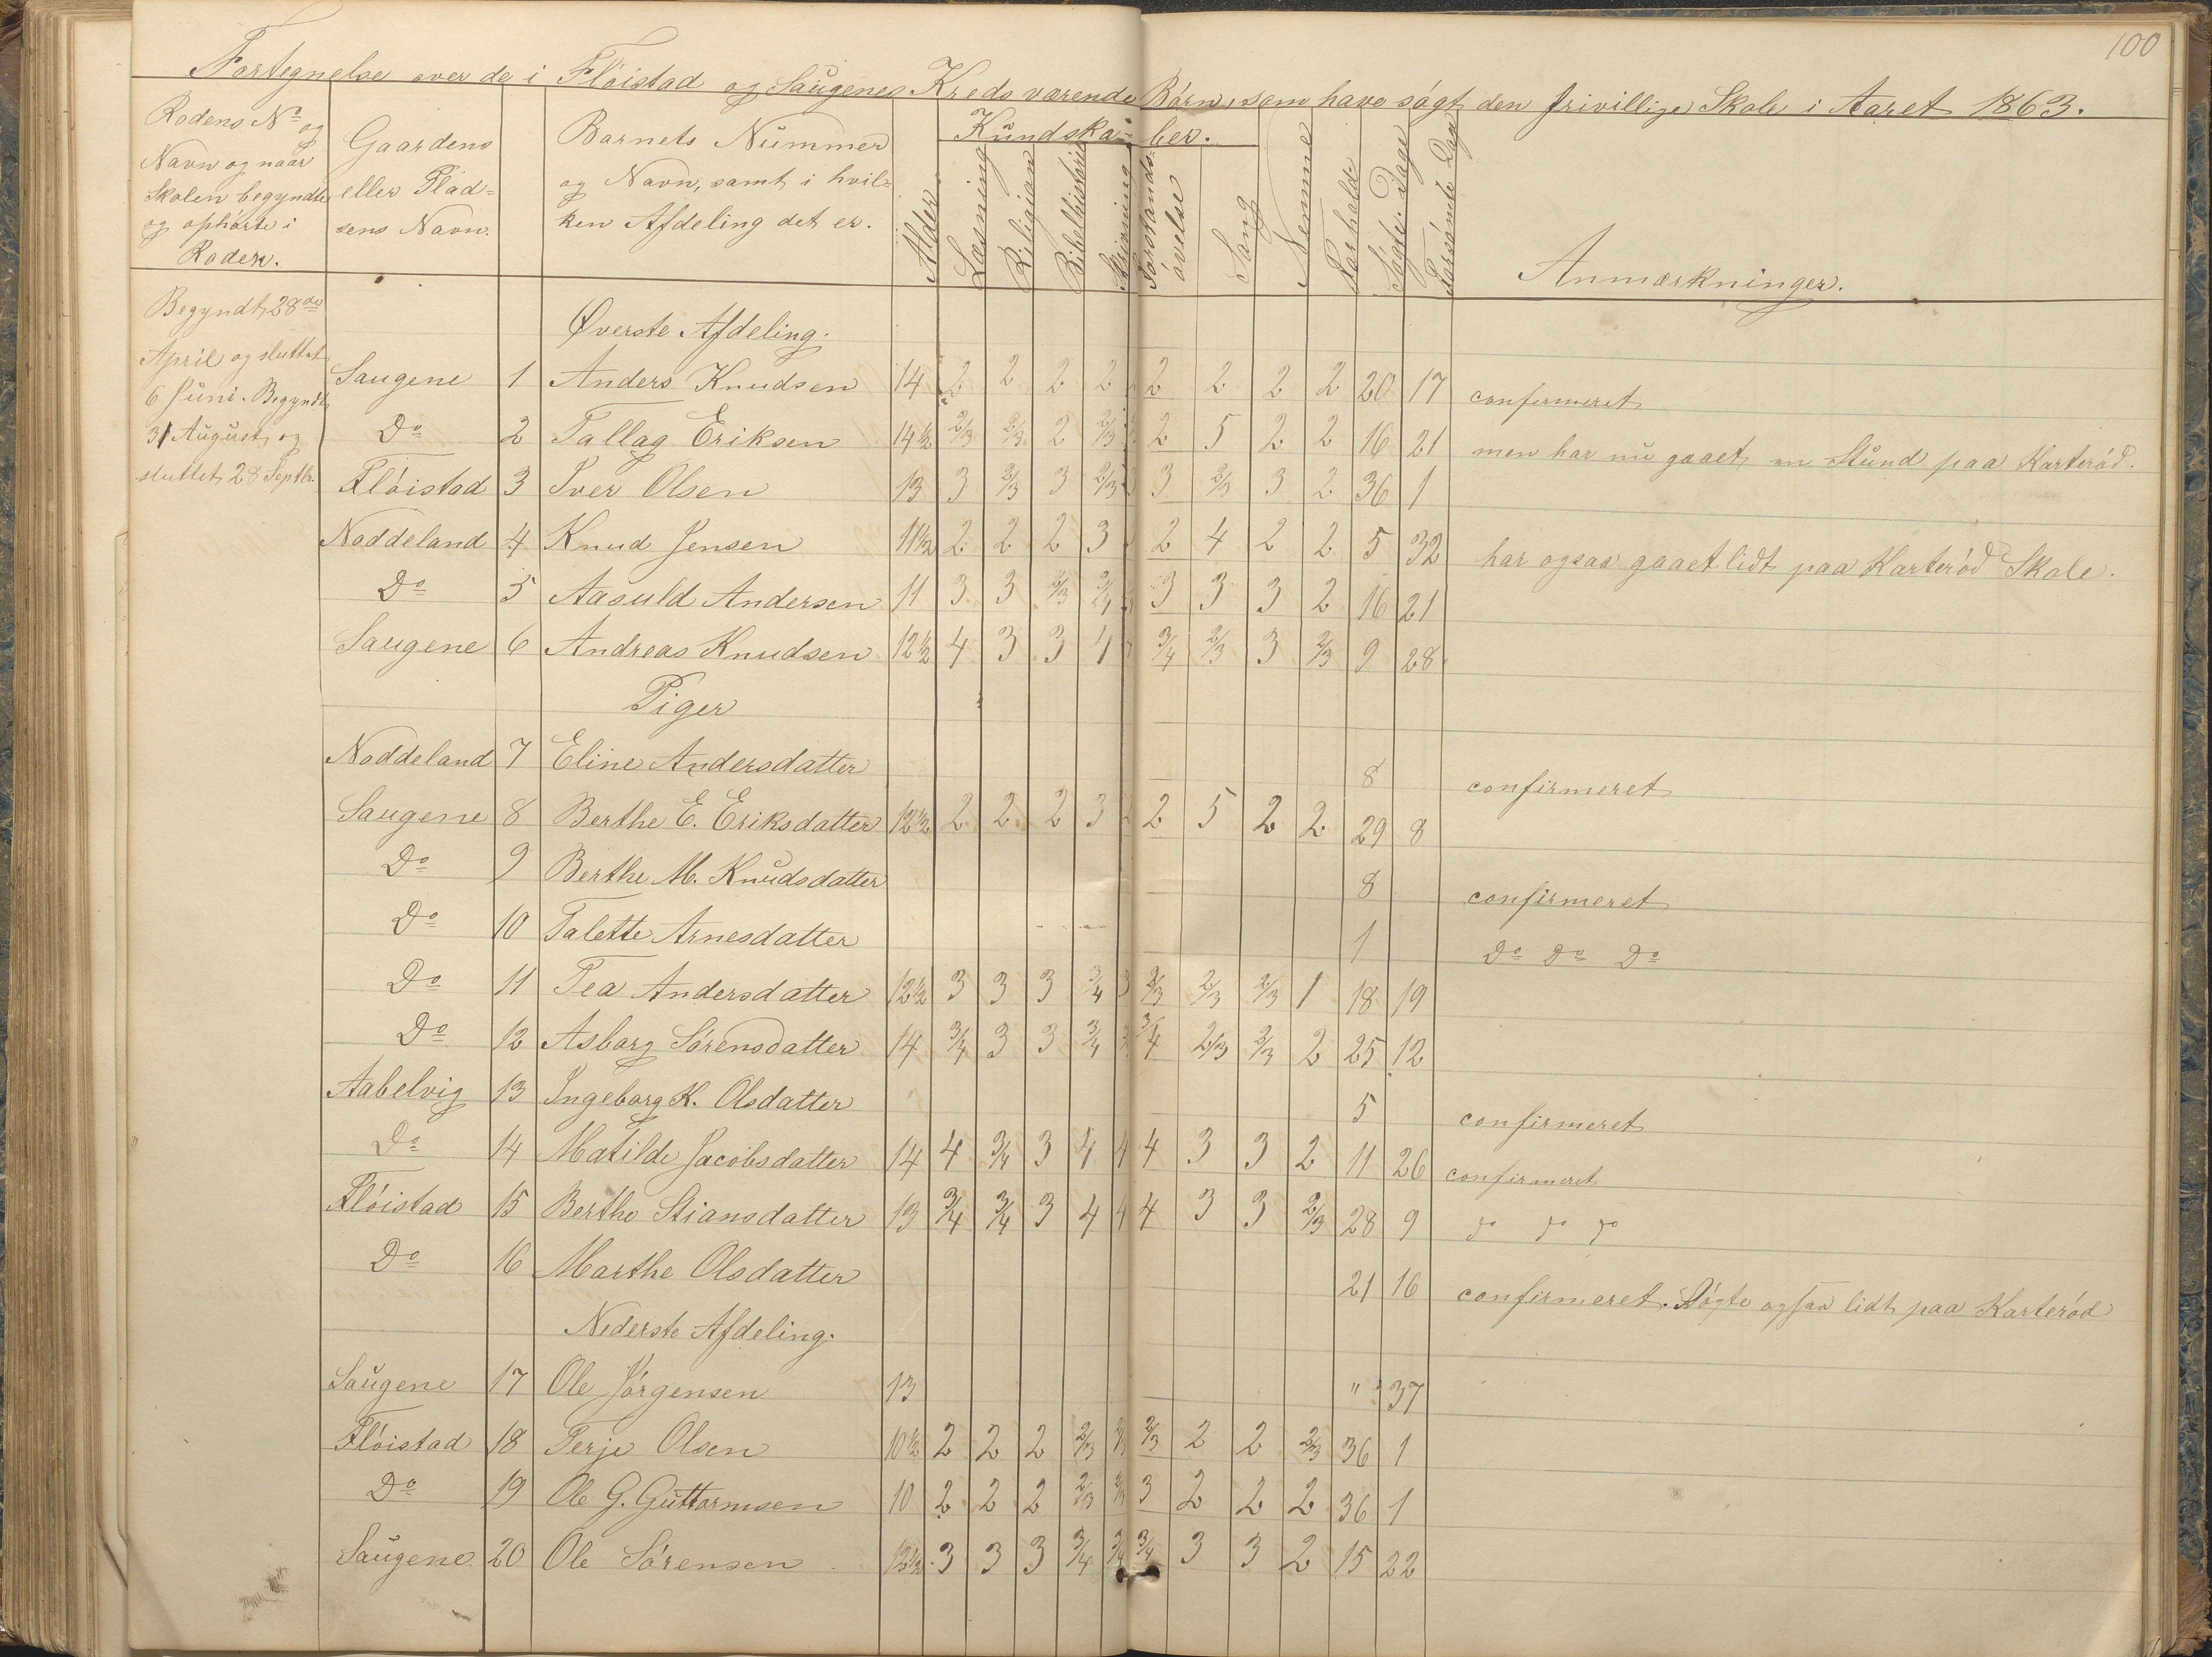 100
Fortegnelse over de i Flóistad og Saugenes Kreds værende Börn, som have sögt den frivillige Skole i Aaret 1863.
Rodens No og Navn og naar Skolen begyndte og ophörte i Roden.
Gaardens eller Pladsens Navn.
Barnets Nummer og Navn, samt i hvilken Afdeling det er.
Alder
Kundskaber.
Læsning
Religion
Bibelhistorie
Skrivning
Forstandsövelse
Sang
Nemme
Forhold
Sögte Dage
Forsömte Dage
Anmærkninger.
Begyndt 28de
April og sluttet
6 Juni. Begyndt
31 August, og
sluttet 28 Septbr.
Øverste Afdeling.
Saugene 1 Anders Knudsen 14 2 2 2 2 2 2 2 2 20 17 confirmeret
Do 2 Tallag Eriksen 14½ 2/3 2/3 2 2/3 2 5 2 2 16 21 men har nu gaaet en Stund paa Karteröd.
Flóistad 3 Iver Olsen 13 3 2/3 3 2/3 3 2/3 3 2 36 1
Noddeland 4 Knud Jensen 11½ 2 2 2 3 2 4 2 2 5 32 har ogsaa gaaet lidt paa Karteröd Skole.
Do 5 Aasuld Andersen 11 3 3 2/3 3/4 3 3 3 2 16 21
Saugene 6 Andreas Knudsen 12½ 4 3 3 4 3/4 2/3 3 2/3 9 28
Piger
Noddeland 7 Eline Andersdatter 8 confirmeret
Saugene 8 Berthe E. Eriksdatter 12½ 2 2 2 3 2 2 5 2 2 29 8
Do 9 Berthe M. Knudsdatter 8 confirmeret
Do 10 Talette Arnesdatter 1 Do Do Do
Do 11 Tea Andersdatter 12½ 3 3 3 3/4 3 2/3 2/3 2/3 1 18 19
Do 12 Asborg Sörensdatter 14 3/4 3 3 3/4 3/4 2/3 2/3 2 25 12
Aabelvig 13 Ingeborg K. Olsdatter 5 confirmeret
Do 14 Matilde Jacobsdatter 14 4 3/4 3 4 4 4 3 3 2 11 26 confirmeret
Flóistad 15 Berthe Stiansdatter 13 3/4 3/4 3 4 4 4 3 3 2/3 28 9 do do do
Do 16 Marthe Olsdatter 21 16 confirmeret. Sögte ogsaa lidt paa Karteröd
Nederste Afdeling.
Saugene 17 Ole Jörgensen 13 " 37
Flóistad 18 Terje Olsen 10½ 2 2 2 2/3 2/3 2/3 2 2 2/3 36 1
Do 19 Ole G. Guttormsen 10 2 2 2 2/3 2/3 3 2 2 2 36 1
Saugene 20 Ole Sörensen 12½ 3 3 3 3/4 3/4 3/4 3 3 2 15 22